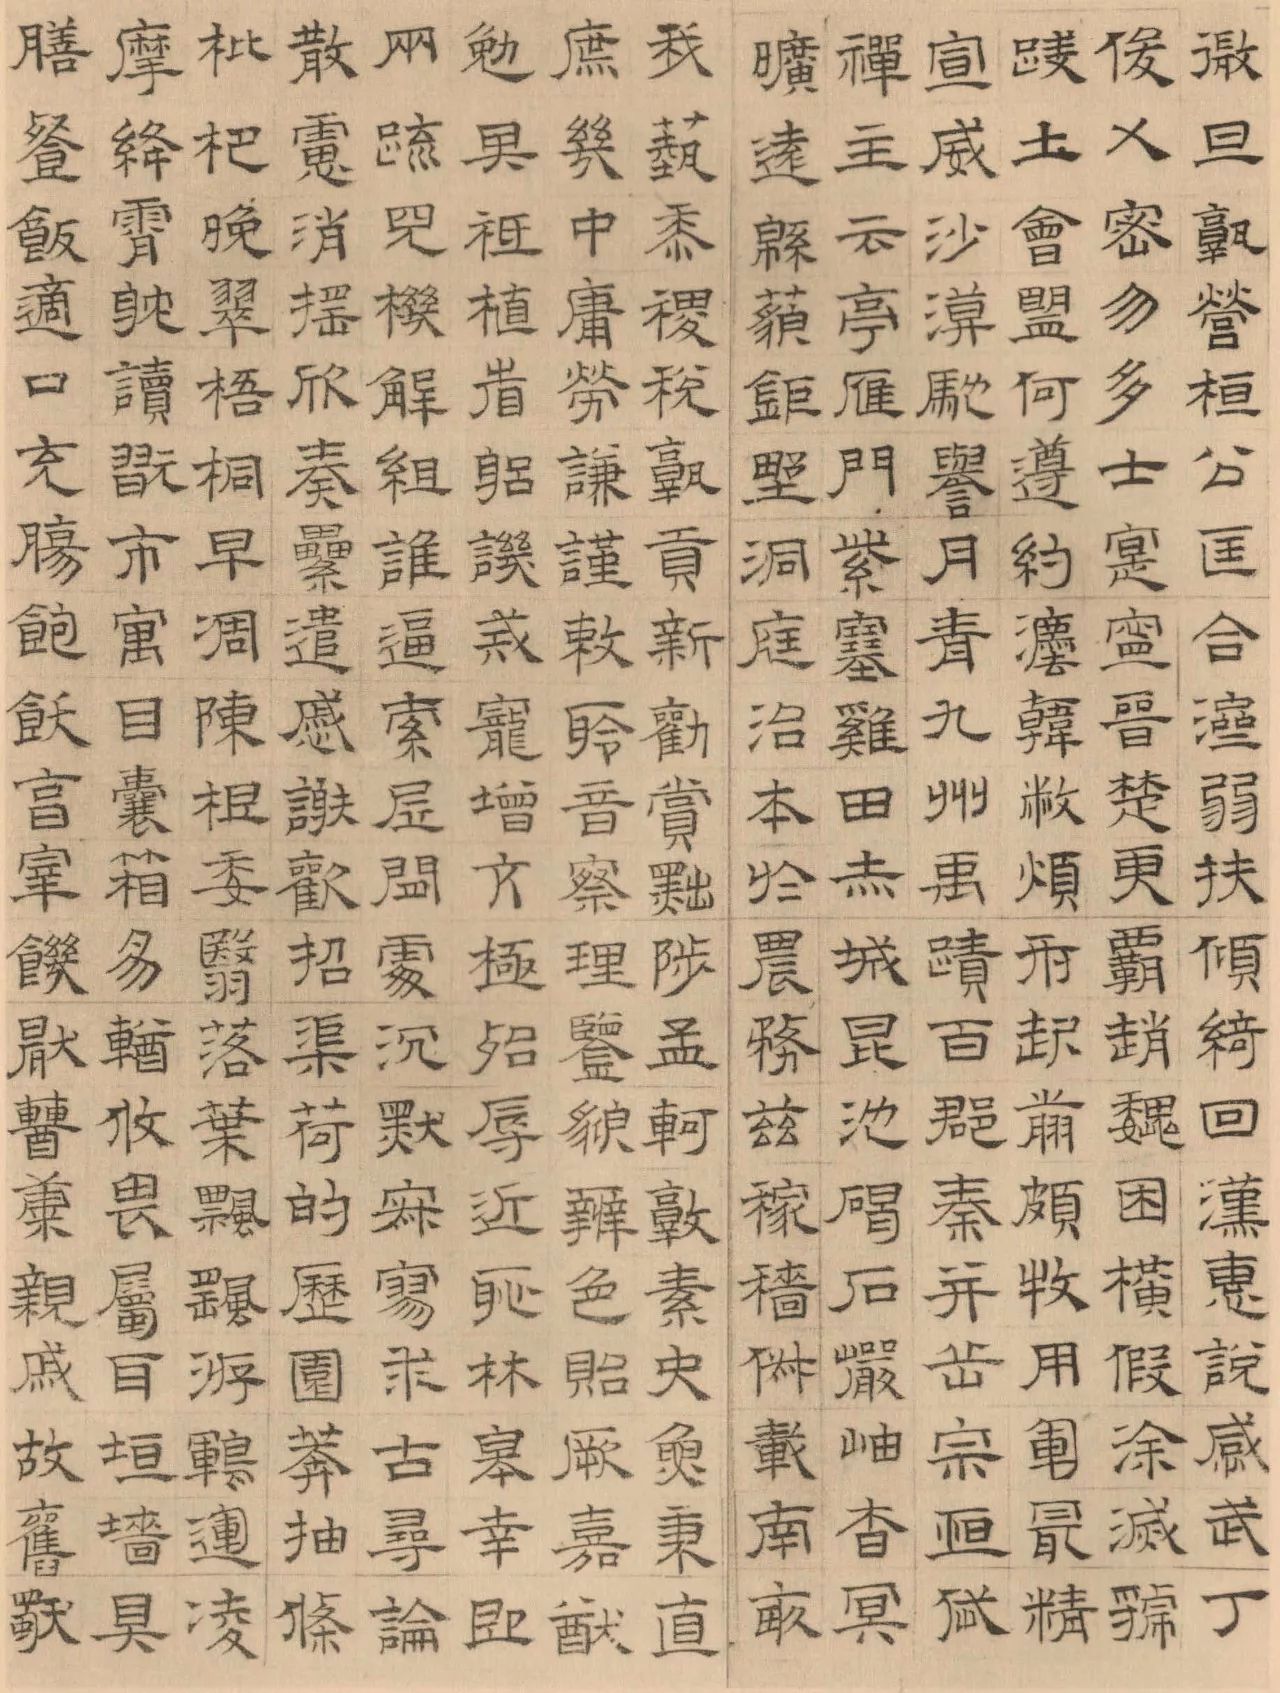 微旦孰營桓公匡合濟弱扶傾綺回漢惠說感武丁
俊乂密勿多士寔寧晉楚更霸趙魏困橫假涂滅虢
踐土會盟何遵約灋韓弊煩刑起翦頗牧用軍最精
宣威沙漠馳譽丹青九州禹蹟百郡秦并岳宗恆岱
禪主云亭雁門紫塞雞田赤城昆池碣石巖岫杳冥
曠遠緜藐鉅野洞庭治本於農務茲稼穡俶載南畝
我藝黍稷稅孰貢新勸賞黜陟孟軻敦素史魚秉直
庶幾中庸勞謙謹敕聆音察理鑒貌辨色貽厥嘉猷
勉其祗植省躬譏戒寵增亢極殆辱近恥林皋幸即
兩疏見機解組誰逼索居閒處沉默寂寥求古尋論
散慮消搖欣奏纍遣慼謝歡招渠荷的歷園莽抽條
枇杷晚翠梧桐早凋陳根委翳落葉飄颻游鶤運凌
摩絳霄躭讀翫市寓目囊箱易輶攸畏屬耳垣墻具
膳餐飯適口充腸飽飫亯宰饑厭糟糠親戚故舊